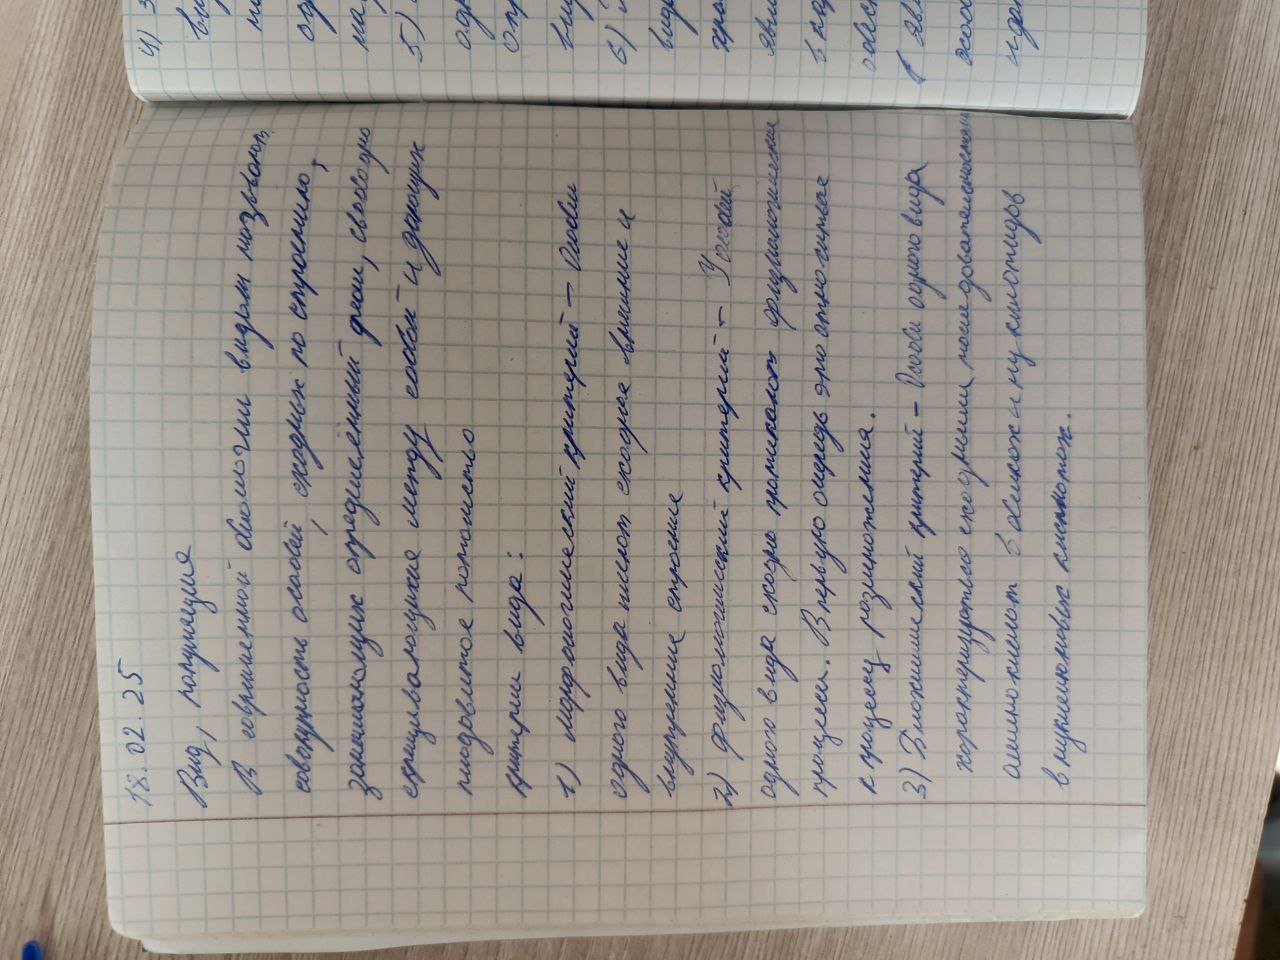 18.02.25
Вид, популяция
В современной биологии видом называют
совокупность особей, сходных по строению,
занимающих определенный ареал, свободно
скрещивающихся между собой и дающих
плодовитое потомство
критерии вида:
1) морфологический критерий – Особи
одного вида имеют сходное внешнее и
внутреннее строение
2) физиологический критерий – У особей
одного вида сходно протекают физиологические
процессы. В первую очередь это относиться
к процессу размножения.
3) Биохимический критерий – Особи одного вида
характеризуются сходными последовательностями
аминокислот в белках и нуклеотидов
в нуклеиновых кислотах.
4)
5)
6)